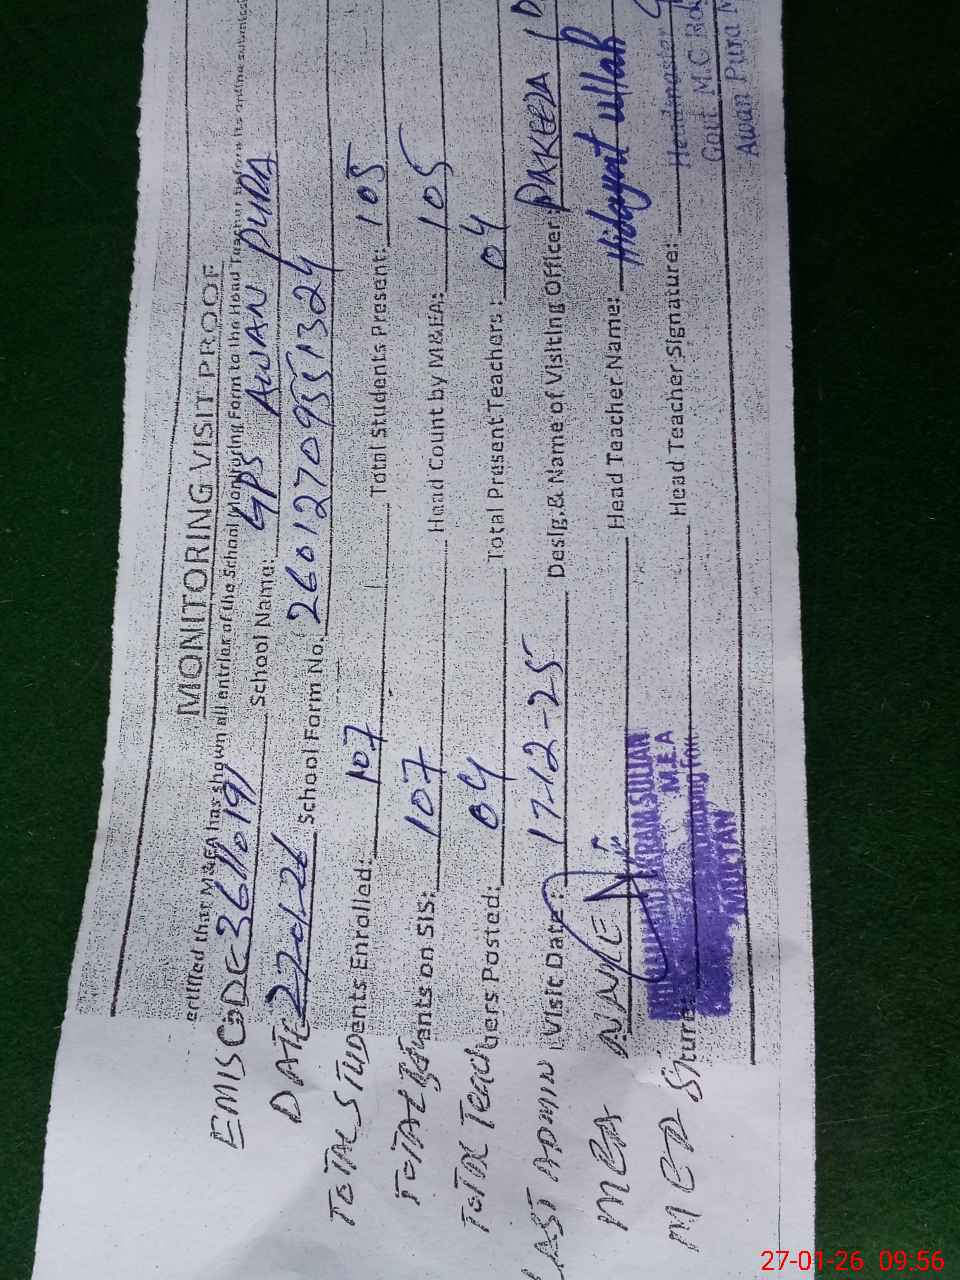 MONITORING VISIT PROOF
ertified that M&EA has shown all entries of the School Monitoring Form to the Head Teacher before its online submiss
EMIS CODE 36110191 School Name: GPS AWAN PURA
DATE School Form No. 26012709551324
TOTAL STUDents Enrolled: 107 Total Students Present: 105
TOTAL ents on SIS: 107 Head Count by M&EA: 105
TOTAL Teachers Posted: 04 Total Present Teachers: 04
LAST ADMIN Visit Date: 17-12-25 Desig.& Name of Visiting Officer: PAKEEZA
MEA NAME Head Teacher Name: Hidayat ullah
MEA Signture: Head Teacher Signature:
AKRAM SULTAN
M.E.A
MULTAN
Headmaster
Govt M.C
Awan Pura
27-01-26 09:56